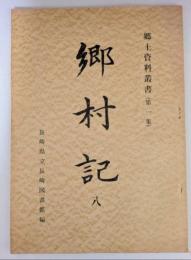 郷土資料叢書（第一集）
郷村記
八
長崎県立長崎図書館編